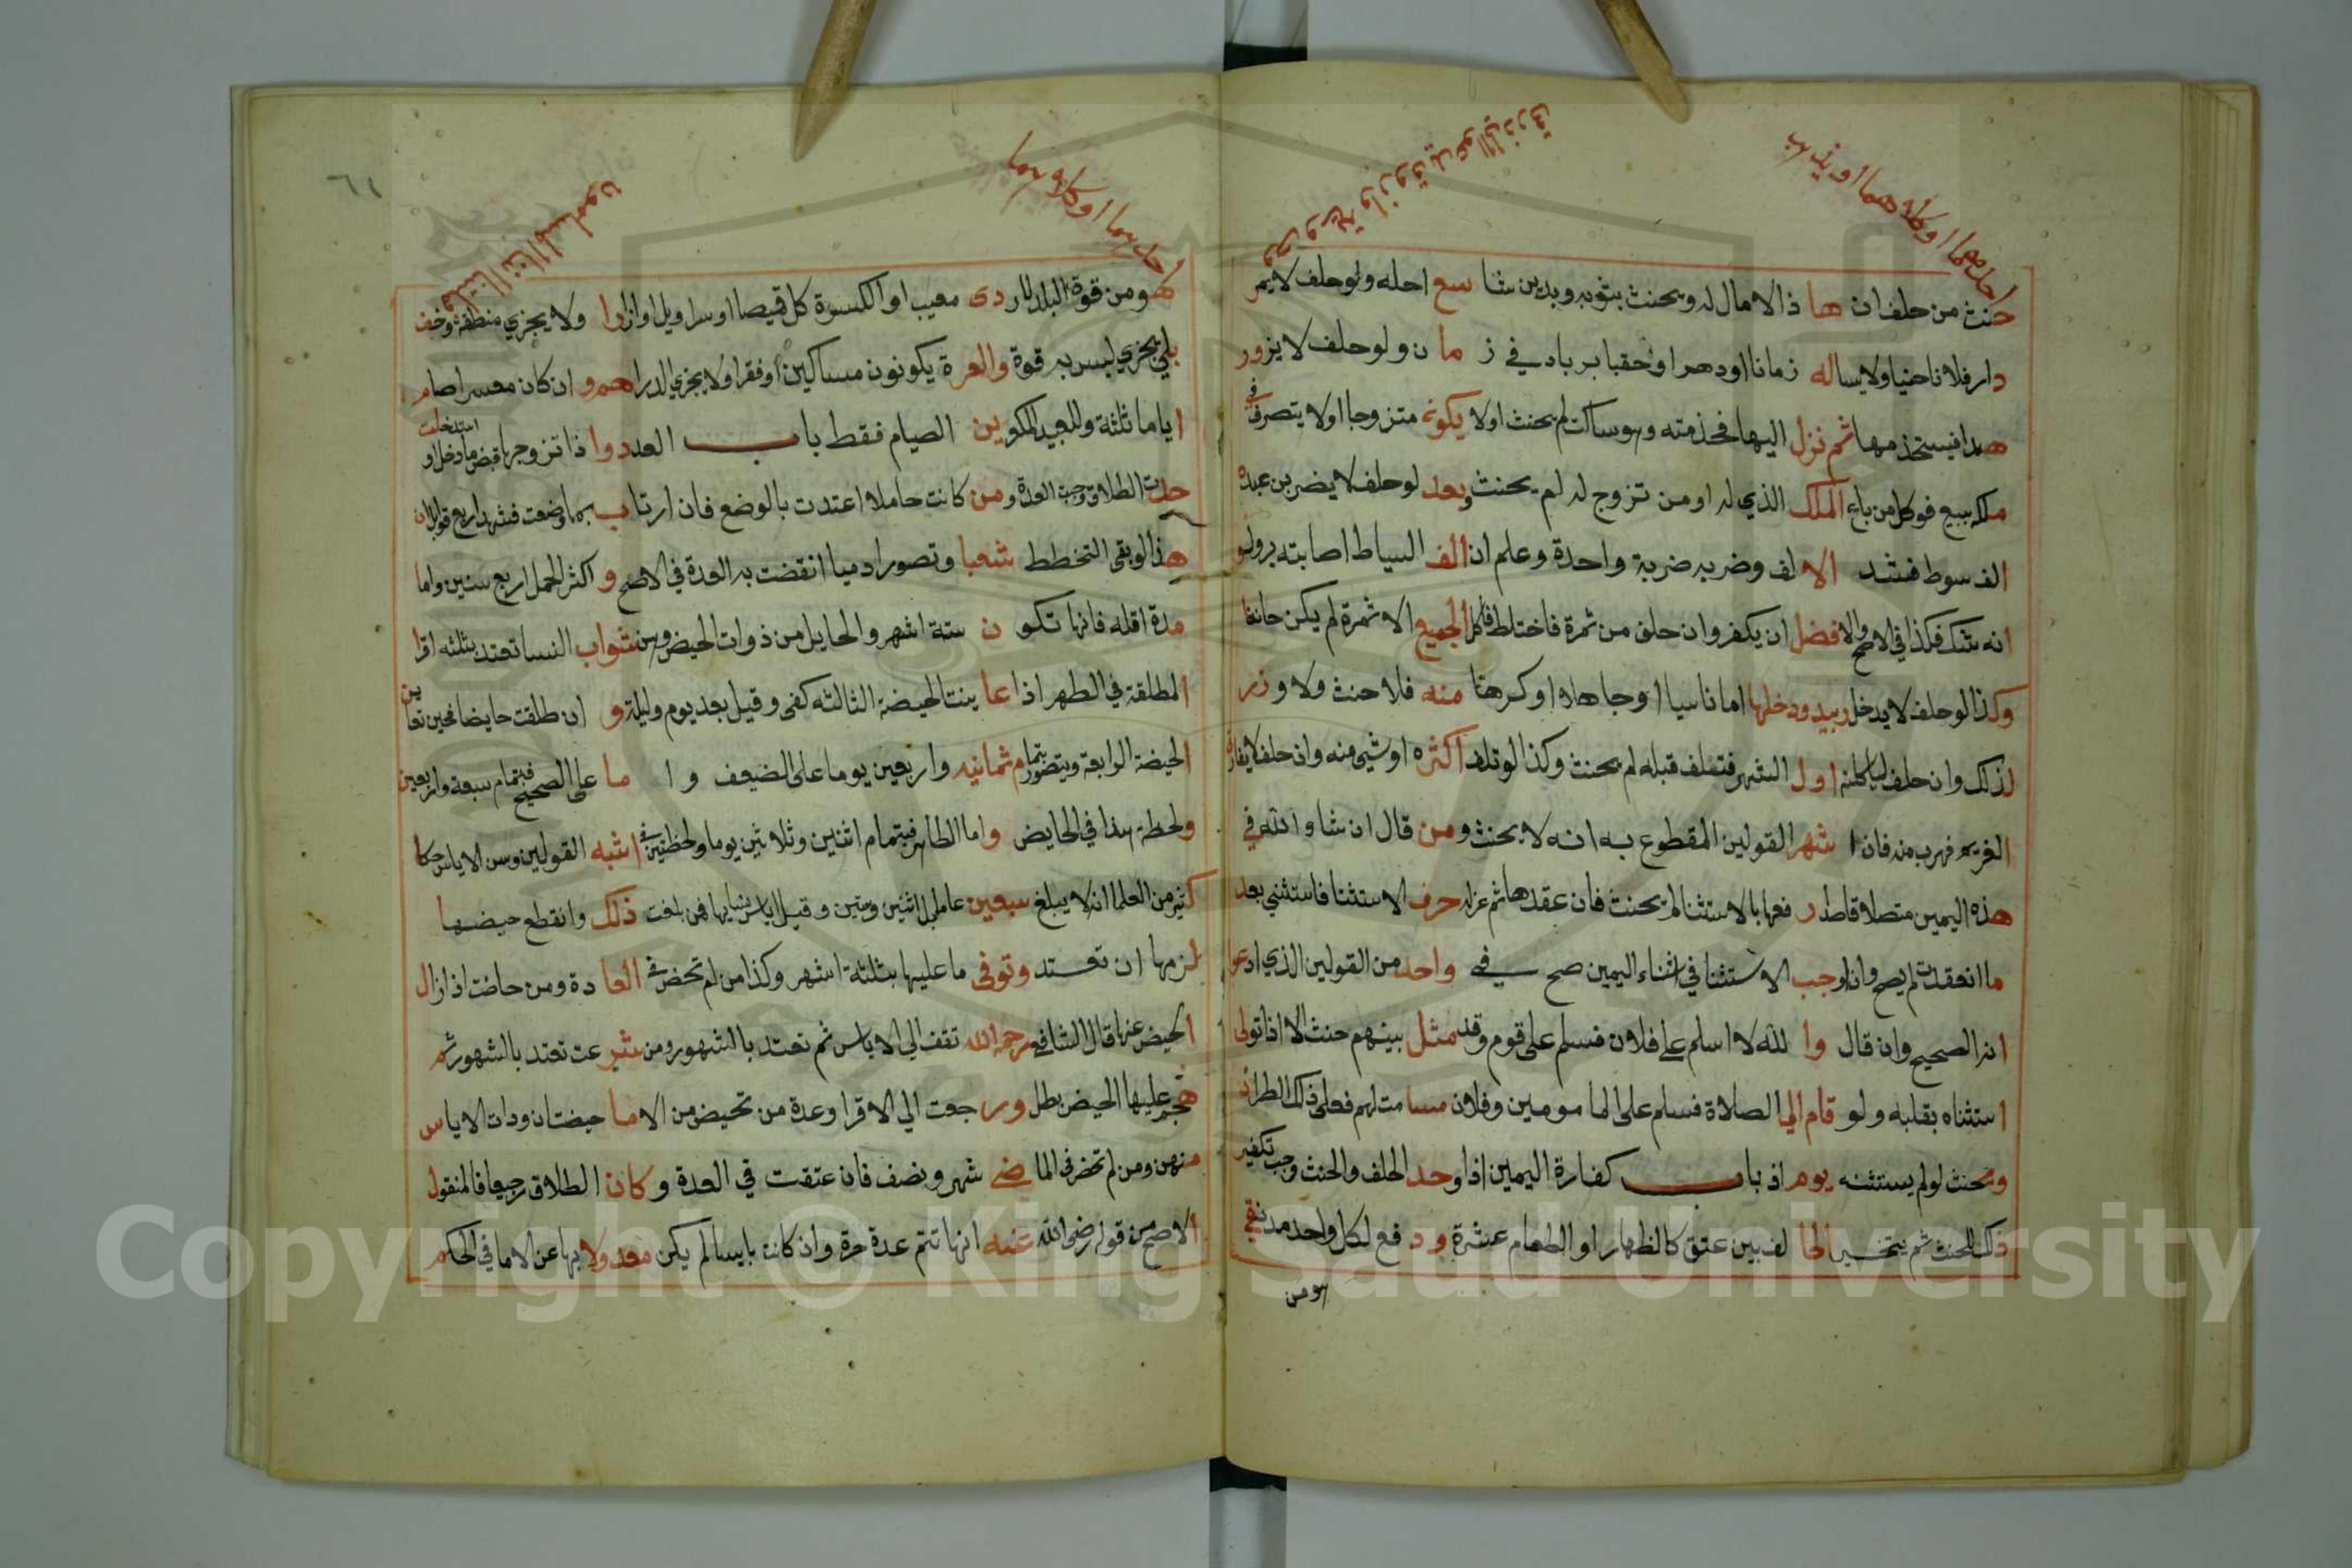 احدهما او كلاهما او يذهب
حنث من حلف ان ها ذا لا مال له ويحنث بثوبه وبدين شا سع احله ولو حلف لا يمر
دار فلا ناحنيا ولا يساله زمانا او دهرا او حقبا بر باد في ز ما ن ولو حلف لا يزور
هدا فيستخذ مها ثم نزل اليها فخذمته وهو ساكت لم يحنث اولا يكون متزوجا اولا يتصرف في
ملكه ببيع فوكل من باع الملك الذي له او من تزوج له لم يحنث وبعد لو حلف لا يضربن عبده
الف سوط فشد الا لف وضربه ضربة واحدة وعلم ان الف السياط اصابته بر ولو
انه شك فكذا في الاصح والا فضل ان يكفر وان حلف من ثمرة فاختلط فاكل الجميع الا ثمرة لم يكن حانثا
وكذا لو حلف لا يدخل ودخلها اما ناسيا او جاهلا او كرها منه فلا حنث ولا و زر
لذلك وان حلف لياكلنه اول الشهر فتلف قبله لم يحنث وكذا لو تلف اكثره او شي منه وان حلف لا يفارق
الغريم فهرب منه فان ا شهر القولين المقطوع به انه لا يحنث ومن قال ان شاء الله في
هذه اليمين متصلا قاصد ر فعها بالاستثنا لم يحنث فان عقدها ثم عزله حرف الاستثنا فاستثني بعد
ما انعقدت لم يصح وان اوجب الا ستثنا في اثناء اليمين صح في واحد من القولين الذي ادعوا
انه الصحيح وان قال وا لله لا اسلم على فلان فسلم على قوم وقد مثل بينهم حنث الا اذا تولى
استثناه بقلبه ولو قام الي الصلاة فسلم على الما مومين وفلان مسا مت لهم فعلى ذلك الطراز
ويحنث لو لم يستثنه يوم اذ باب كفارة اليمين اذا وحد الحلف والحنث وجب تكفير
ذلك للحنث ثم يتخير الحا لف بين عتق كالظهار او الطعام عشرة ود فع لكل واحد مد نقي
هو من
٦١
احدهما او كلاهما
هو من قوة البلد لا ر دى معيب او الكسوة كل قميصا او سراويل او ازا را ولا يجزي منطقة وخف
بلي يجزي لبس به قوة والعر ة يكونون مساكين او فقرا ولا يجزي الدراهم و ان كان معسرا صام
اياما ثلثة وللعبيد المكو ين الصيام فقط باب العدد وا ذا تزوجها قبض ما دخل او استدخلت
حلت الطلاق وجب العدة ومن كانت حاملا اعتدت بالوضع فان ارتا ب بما وضعت فشهد اربع قوابل ان
هذا لو بقي التخطط شعبا وتصور ادميا انقضت به العدة في الاصح و اكثر الحمل اربع سنين واما
مدة اقله فانها تكو ن ستة اشهر والحايل من ذوات الحيض وهن شواب النسا تعتد بثلثه اقرا
المطلقة في الطهر اذا عا ينت الحيضة الثالثه كفى وقيل بعد يوم وليلة و ان طلقت حايضا فحين تعاين
الحيضة الرابعة ويتصور بتمام ثمانيه واربعين يوما على الضعيف و ا ما على الصحيح فبتمام سبعة واربعين
ولحظة هذا في الحايض واما الطاهر فبتمام اثنين وثلاثين يوما ولحظتين في اشبه القولين وسن الاياس حكا
كثير من العلما انه لا يبلغ سبعين عاما بل اثنين وستين وقيل اياس نسايها فمن بلغت ذلك وانقطع حيضها
لزمها ان تعتد وتوفى ما عليها بثلثة اشهر وكذا من لم تحض في العا دة ومن حاضت اذا زال
الحيض عنها قال الشافعي رحمه الله تقف الى الاياس ثم تعتد بالشهور ومن شر عت تعتد بالشهور ثم
هجم عليها الحيض بطل ور جعت الي الاقرا وعدة من تحيض من الاما حيضتان وذات الاياس
منهن ومن لم تحض في الما ضي شهر ونصف فان عتقت في العدة وكان الطلاق رجعيا فالمنقول
الاصح من قوله رضي الله عنه انها تتم عدة حرة وان كانت بايسا لم يكن معد ولا بها عن الاما في الحكم
Copyright © King Saud University